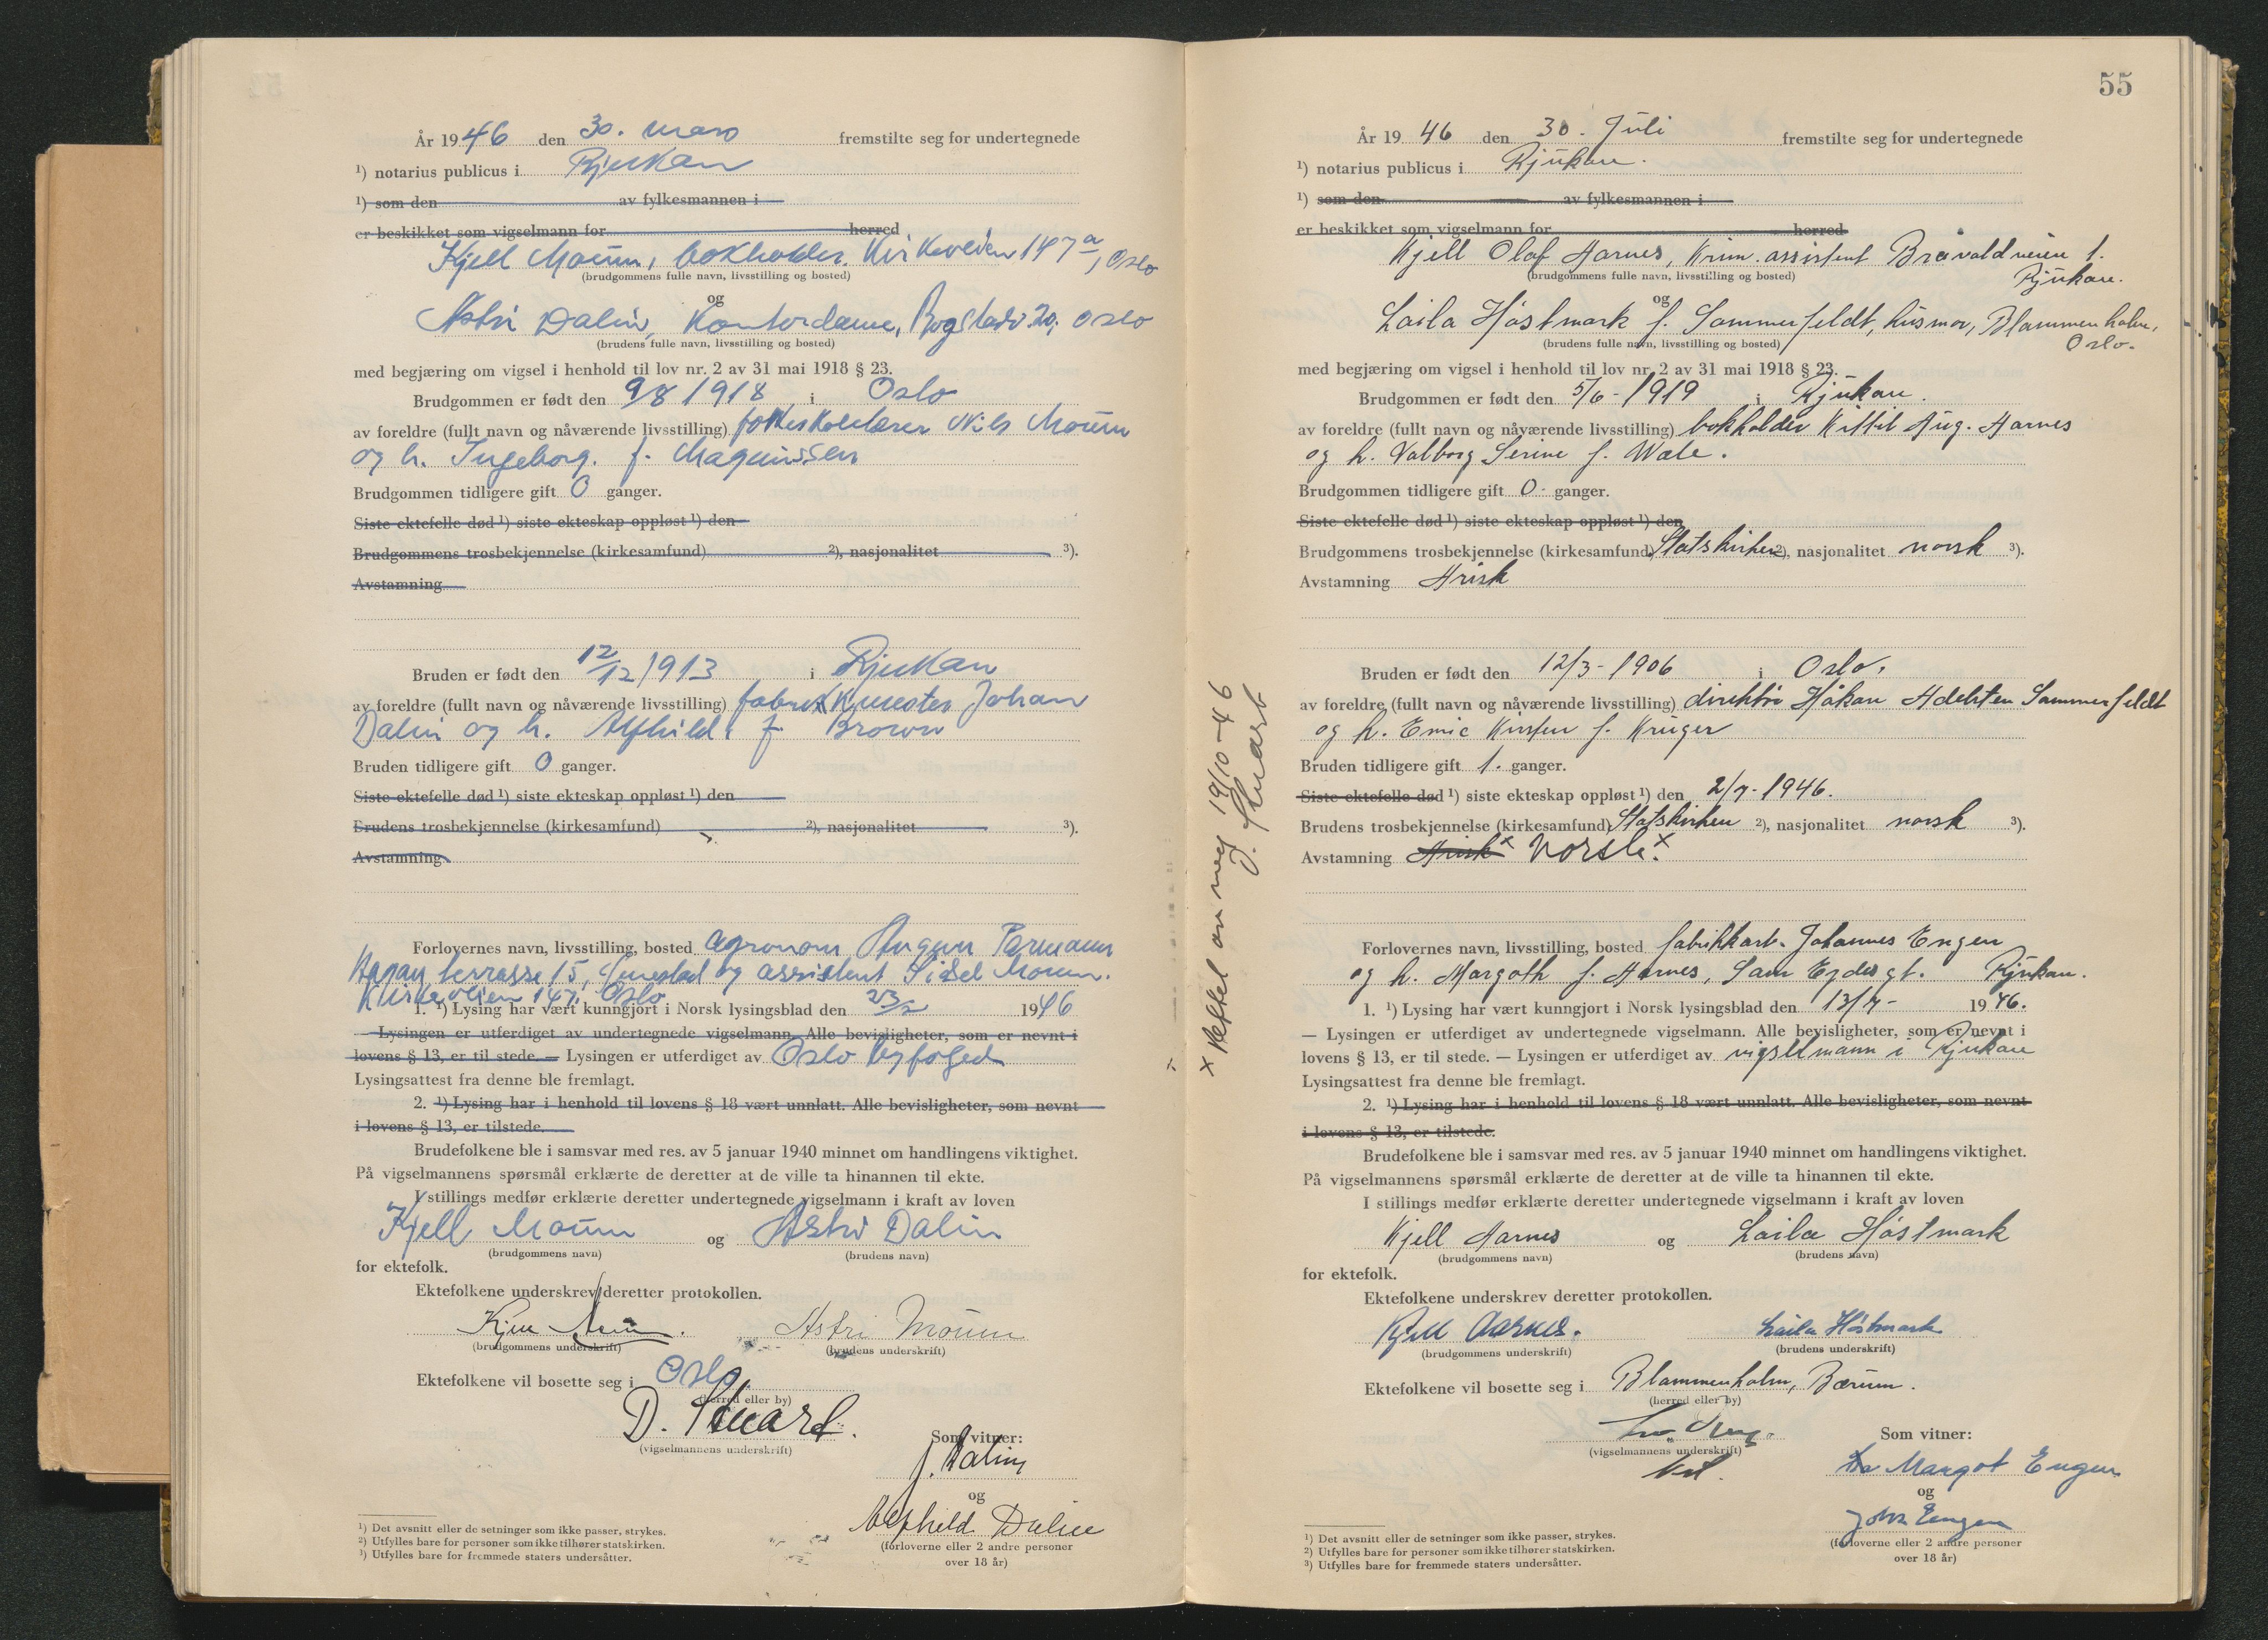 År 1946 den 30. mars fremstilte seg for undertegnede
¹) notarius publicus i Rjukan
¹) som den av fylkesmannen i
er beskikket som vigselmann for herred
Kjell Moum, bokholder, Kirkeveien 147 a, Oslo
(brudgommens fulle navn, livsstilling og bosted)
og
Astri Dalin, Kontordame, Bogstadv. 20, Oslo
(brudens fulle navn, livsstilling og bosted)
med begjæring om vigsel i henhold til lov nr. 2 av 31 mai 1918 § 23.
Brudgommen er født den 9/8 1918 i Oslo
av foreldre (fullt navn og nåværende livsstilling) folkeskolelærer Nils Moum
og h. Ingeborg. f. Magnussen
Brudgommen tidligere gift 0 ganger.
Siste ektefelle død ¹) siste ekteskap oppløst ¹) den
Brudgommens trosbekjennelse (kirkesamfund) ²), nasjonalitet ³).
Avstamning
Bruden er født den 12/12 1913 i Rjukan
av foreldre (fullt navn og nåværende livsstilling) fabrikkmester Johan
Dalin og h. Alfhild f. Brown
Bruden tidligere gift 0 ganger.
Siste ektefelle død ¹) siste ekteskap oppløst ¹) den
Brudens trosbekjennelse (kirkesamfund) ²), nasjonalitet ³).
Avstamning
Forlovernes navn, livsstilling, bosted agronom Parmann
terrasse 15, og assistent Sidsel Moum.
Kirkeveien 147, Oslo
1. ¹) Lysing har vært kunngjort i Norsk lysingsblad den 23/2 1946
— Lysingen er utferdiget av undertegnede vigselmann. Alle bevisligheter, som er nevnt i
lovens § 13, er til stede. — Lysingen er utferdiget av Oslo byfoged
Lysingsattest fra denne ble fremlagt.
2. ¹) Lysing har i henhold til lovens § 18 vært unnlatt. Alle bevisligheter, som nevnt
i lovens § 13, er tilstede.
Brudefolkene ble i samsvar med res. av 5 januar 1940 minnet om handlingens viktighet.
På vigselmannens spørsmål erklærte de deretter at de ville ta hinannen til ekte.
I stillings medfør erklærte deretter undertegnede vigselmann i kraft av loven
Kjell Moum og Astri Dalin
(brudgommens navn) (brudens navn)
for ektefolk.
Ektefolkene underskrev deretter protokollen.
Kjell Moum. Astri Moum
(brudgommens underskrift) (brudens underskrift)
Ektefolkene vil bosette seg i Oslo
(herred eller by)
D. Stuart.
(vigselmannens underskrift)
Som vitner:
J. Dalin
og
Alfhild Dalin
(forloverne eller 2 andre personer
over 18 år)
¹) Det avsnitt eller de setninger som ikke passer, strykes.
²) Utfylles bare for personer som ikke tilhører statskirken.
³) Utfylles bare for fremmede staters undersåtter.
x Rettet av meg 19/10-46
D. Stuart
55
År 1946 den 30. Juli fremstilte seg for undertegnede
¹) notarius publicus i Rjukan.
¹) som den av fylkesmannen i
er beskikket som vigselmann for herred
Kjell Olaf Aarnes, Krim.assistent Bråvaldveien 1.
Rjukan.
(brudgommens fulle navn, livsstilling og bosted)
og
Laila Høstmark f. Sommerfeldt, husmor, Blommenholm,
Oslo.
(brudens fulle navn, livsstilling og bosted)
med begjæring om vigsel i henhold til lov nr. 2 av 31 mai 1918 § 23.
Brudgommen er født den 5/6-1919 i Rjukan.
av foreldre (fullt navn og nåværende livsstilling) bokholder Kittil Aug. Aarnes
og h. Valborg Serine f. Wale.
Brudgommen tidligere gift 0 ganger.
Siste ektefelle død ¹) siste ekteskap oppløst ¹) den
Brudgommens trosbekjennelse (kirkesamfund) Statskirken ²), nasjonalitet norsk ³).
Avstamning Arisk
Bruden er født den 12/3-1906 i Oslo.
av foreldre (fullt navn og nåværende livsstilling) direktør Håkan Adelsten Sommerfeldt
og h. Emie Kirsten f. Krüger
Bruden tidligere gift 1. ganger.
Siste ektefelle død ¹) siste ekteskap oppløst ¹) den 2/7-1946.
Brudens trosbekjennelse (kirkesamfund) Statskirken ²), nasjonalitet norsk ³).
Avstamning Arisk x Norsk. x
Forlovernes navn, livsstilling, bosted fabrikkarb. Johannes Engen
og h. Margoth f. Aarnes, Sam Eydes gt. Rjukan.
1. ¹) Lysing har vært kunngjort i Norsk lysingsblad den 13/7- 1946.
— Lysingen er utferdiget av undertegnede vigselmann. Alle bevisligheter, som er nevnt i
lovens § 13, er til stede. — Lysingen er utferdiget av vigselmann i Rjukan
Lysingsattest fra denne ble fremlagt.
2. ¹) Lysing har i henhold til lovens § 18 vært unnlatt. Alle bevisligheter, som nevnt
i lovens § 13, er tilstede.
Brudefolkene ble i samsvar med res. av 5 januar 1940 minnet om handlingens viktighet.
På vigselmannens spørsmål erklærte de deretter at de ville ta hinannen til ekte.
I stillings medfør erklærte deretter undertegnede vigselmann i kraft av loven
Kjell Aarnes og Laila Høstmark
(brudgommens navn) (brudens navn)
for ektefolk.
Ektefolkene underskrev deretter protokollen.
Kjell Aarnes. Laila Høstmark
(brudgommens underskrift) (brudens underskrift)
Ektefolkene vil bosette seg i Blommenholm, Bærum.
(herred eller by)
(vigselmannens underskrift)
Som vitner:
Margot Engen
og
Johs Engen
(forloverne eller 2 andre personer
over 18 år)
¹) Det avsnitt eller de setninger som ikke passer, strykes.
²) Utfylles bare for personer som ikke tilhører statskirken.
³) Utfylles bare for fremmede staters undersåtter.